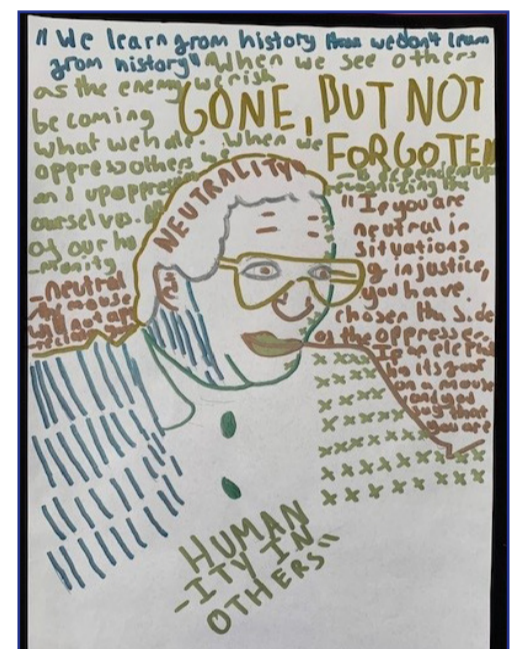 "We learn from history than wedon't learn
from history" When we see others
as the enemy we risk
becoming
what we hate. When we
oppress others
and up oppre
ourselves. All
of our hu
-manity
GONE, BUT NOT
FORGOTEN
is dependent
recognizing the
NEUTRALITY
"If you are
neutral in
situations
of injustice,
you have
chosen the side
of the oppressor.
If an eleph
has its foot
on a mouse
and you
say that
you are
-neutral
the mouse
will not
HUMAN
-ITY IN
OTHERS"